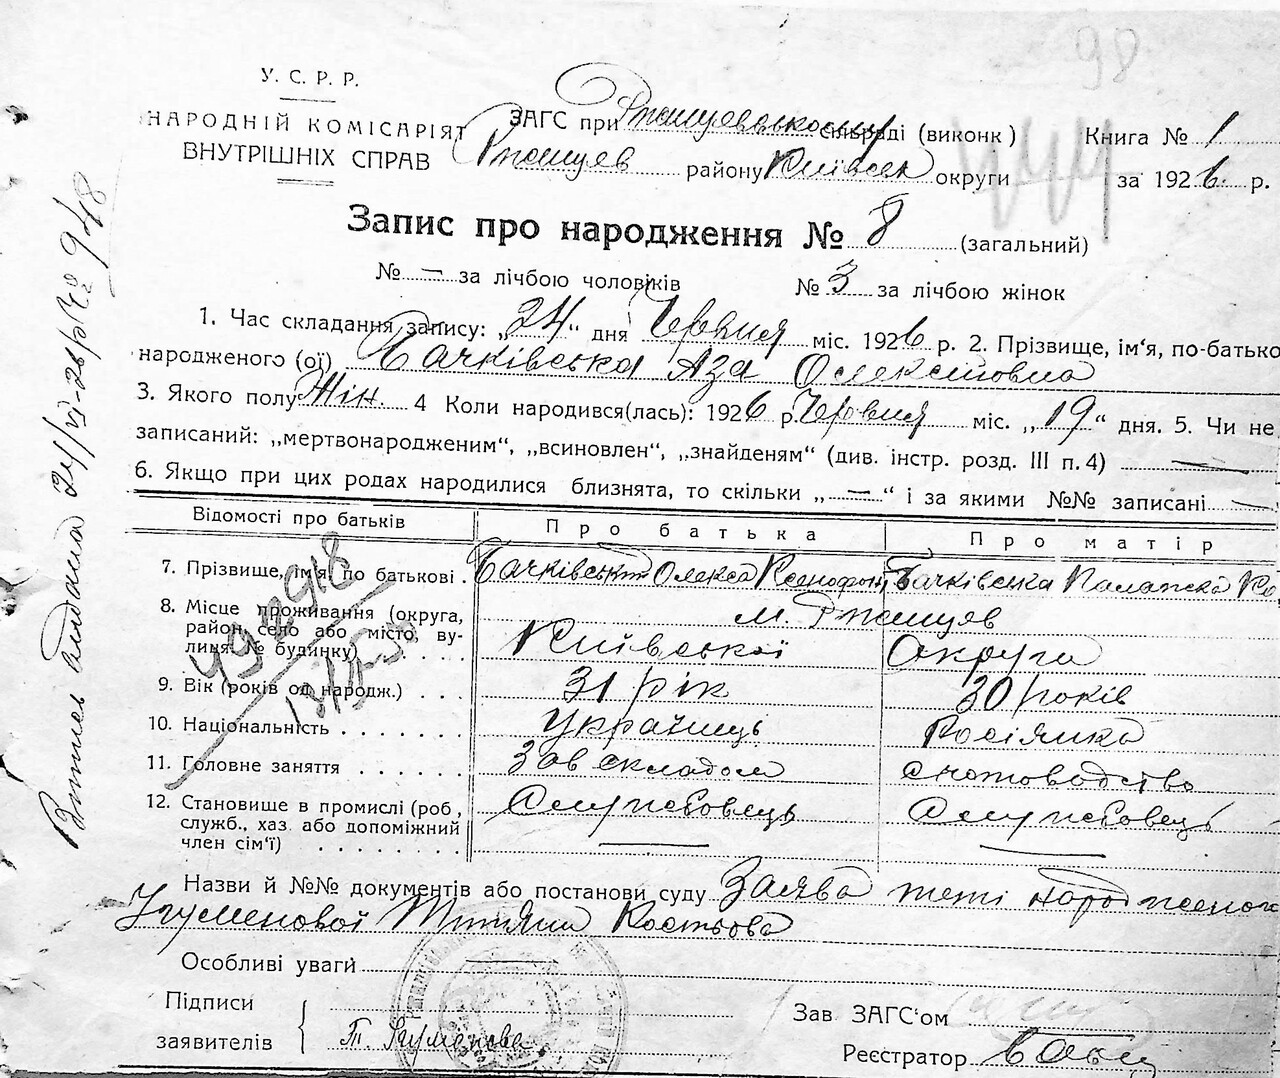 98
У. С. Р. Р.
НАРОДНІЙ КОМІСАРІЯТ
ВНУТРІШНІХ СПРАВ
ЗАГС при Ржищевському сільраді (виконк)
Ржищев району Київськ округи
Книга № 1
за 1926 р.
Запис про народження № 8 (загальний)
№ — за лічбою чоловіків № 3 за лічбою жінок
1. Час складання запису: „24“ дня Червня міс. 1926 р. 2. Прізвище, ім'я, по-батькo
народженого (ої) Бачківська Аза Олексіївна
3. Якого полу Жін. 4 Коли народився(лась): 1926 р. Червня міс. „19“ дня. 5. Чи не
записаний: „мертвонародженим“, „всиновлен“, „знайденям“ (див. інстр. розд. III п. 4) —
6. Якщо при цих родах народилися близнята, то скільки „—“ і за якими №№ записані —
Відомості про батьків Про батька Про матір
7. Прізвище, ім'я, по батькові. Бачківський Олекса Ксенофон Бачківська Палажка Ко
8. Місце проживання (округа, район, село або місто, вулиця, № будинку) м. Ржищев
Київської Округи
9. Вік (років од народж.) . . . 31 рік 30 років
10. Національність . . . . . . . Українець Росіянка
11. Головне заняття . . . . . . Зав складом
12. Становище в промислі (роб, Службовець Службовець
служб., хаз або допоміжний
член сім'ї) . . . . . . . . — —
Назви й №№ документів або постанови суду Заява тоті народженого
Ігуменової Костьова
Особливі уваги —
Підписи
заявителів Т. Ігуменова
Зав ЗАГС'ом
Реєстратор